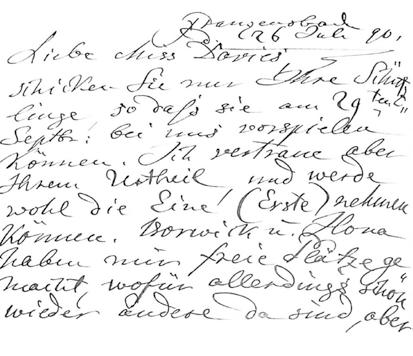 Franzensbad
26 Juli 90.
Liebe Miss Davies
schicken Sie nur Ihre Schütz
linge, so daß sie am 29 ten
Septbr. bei uns vorspielen
können. Ich vertraue aber
Ihrem Urtheil und werde
wohl die Eine! (Erste) nehmen
können. Borwick u. Ilona
haben mir freie Plätze ge
macht wofür allerdings schön
wieder andere da sind, aber